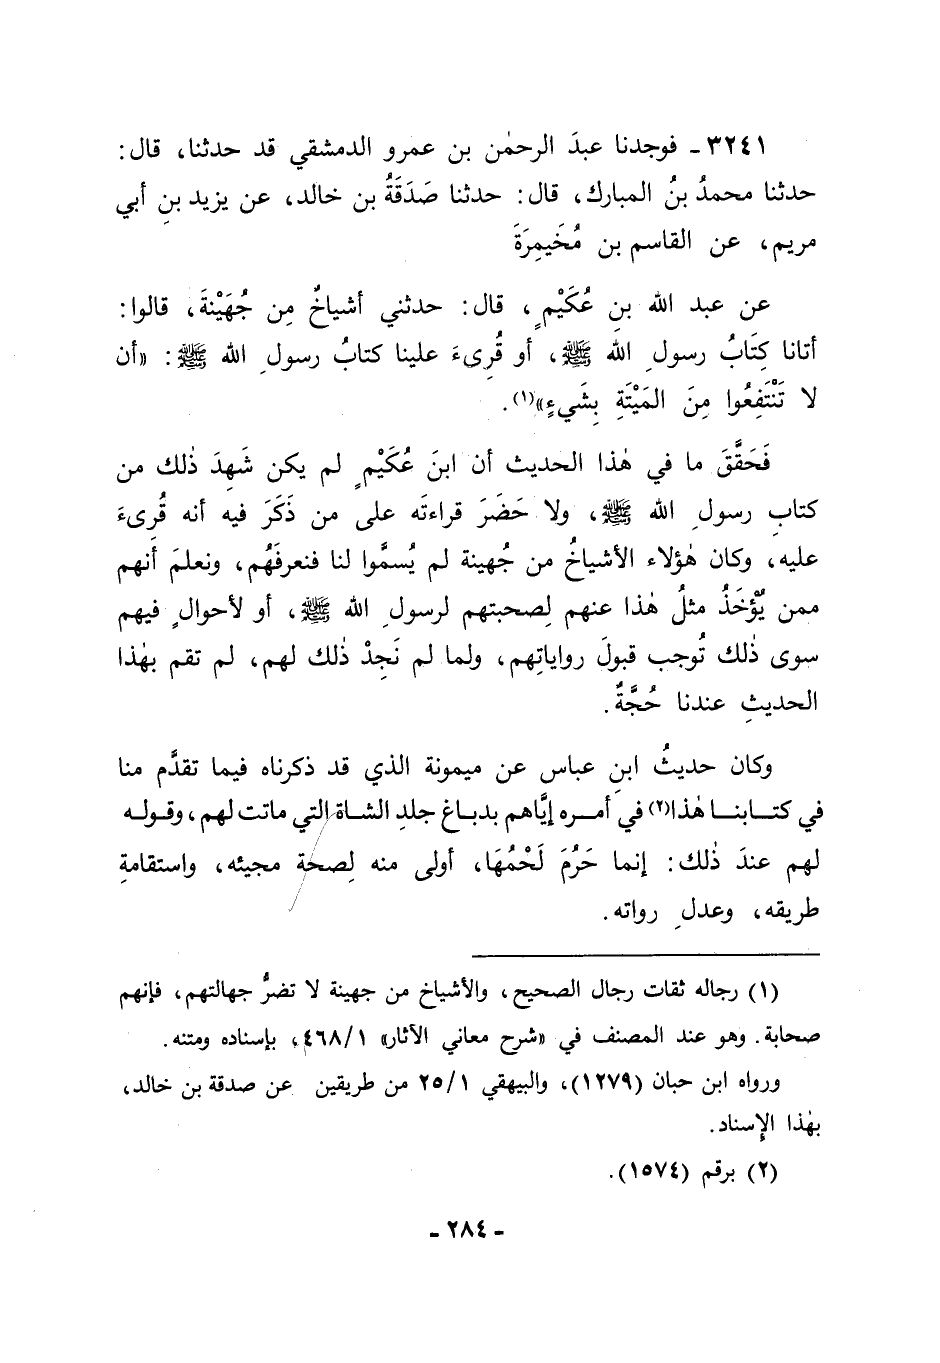 ٣٢٤١ ـ فوجدنا عبدَ الرحمٰن بن عمرو الدمشقي قد حدثنا، قال:
حدثنا محمدُ بنُ المبارك، قال: حدثنا صَدَقَةُ بن خالد، عن يزيد بنِ أبي
مريم، عن القاسم بن مُخَيمِرَةَ
عن عبد الله بنِ عُكَيْمٍ، قال: حدثني أشياخٌ مِن جُهَيْنةَ، قالوا:
أتانا كِتَابُ رسولِ الله ﷺ، أو قُرِىءَ علينا كتابُ رسولِ الله ﷺ: «أن
لا تَنْتَفِعُوا مِنَ المَيْتَةِ بِشَيءٍ»(١).
فَحَقَّقَ ما في هٰذا الحديث أن ابنَ عُكَيْمٍ لم يكن شَهِدَ ذٰلك من
كتابِ رسولِ الله ﷺ، ولا حَضَرَ قراءتَه على من ذَكَرَ فيه أنه قُرِىءَ
عليه، وكان هٰؤلاء الأشياخُ من جُهينة لم يُسمَّوا لنا فنعرفَهُم، ونعلمَ أنهم
ممن يُؤْخَذُ مثلُ هٰذا عنهم لِصحبتهم لرسولِ الله ﷺ، أو لأحوالٍ فيهم
سوى ذٰلك تُوجب قبولَ رواياتِهم، ولما لم نَجِدْ ذٰلك لهم، لم تقم بهٰذا
الحديثِ عندنا حُجَّةٌ.
وكان حديثُ ابنِ عباس عن ميمونة الذي قد ذكرناه فيما تقدَّم منا
في كتابنا هٰذا(٢) في أمره إيَّاهم بدباغ جلدِ الشاة التي ماتت لهم، وقوله
لهم عندَ ذٰلك: إنما حَرُمَ لَحْمُهَا، أولى منه لِصحة مجيئه، واستقامةِ
طريقه، وعدلِ رواته.
(١) رجاله ثقات رجال الصحيح، والأشياخ من جهينة لا تضرُّ جهالتهم، فإنهم
صحابة. وهو عند المصنف في «شرح معاني الآثار» ٤٦٨/١، بإسناده ومتنه.
ورواه ابن حبان (١٢٧٩)، والبيهقي ٢٥/١ من طريقين عن صدقة بن خالد،
بهٰذا الإسناد.
(٢) برقم (١٥٧٤).
ـ ٢٨٤ ـ